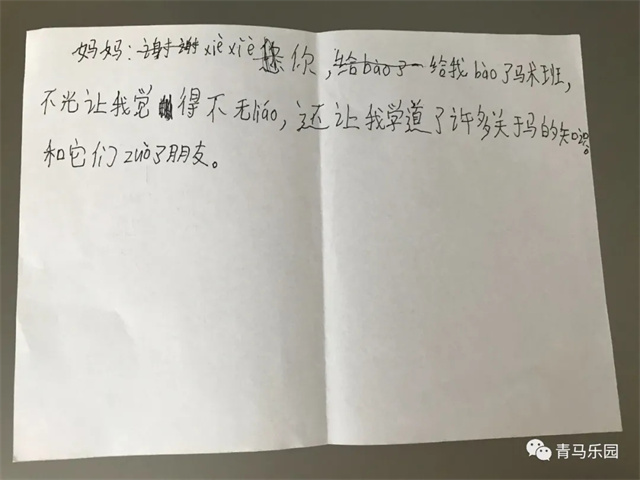 妈妈：谢谢xièxiè您你，给bào了一给我bào了马术班，
不光让我觉得不无liáo，还让我学道了许多关于马的知识。
和它们zuò了朋友。
青马乐园